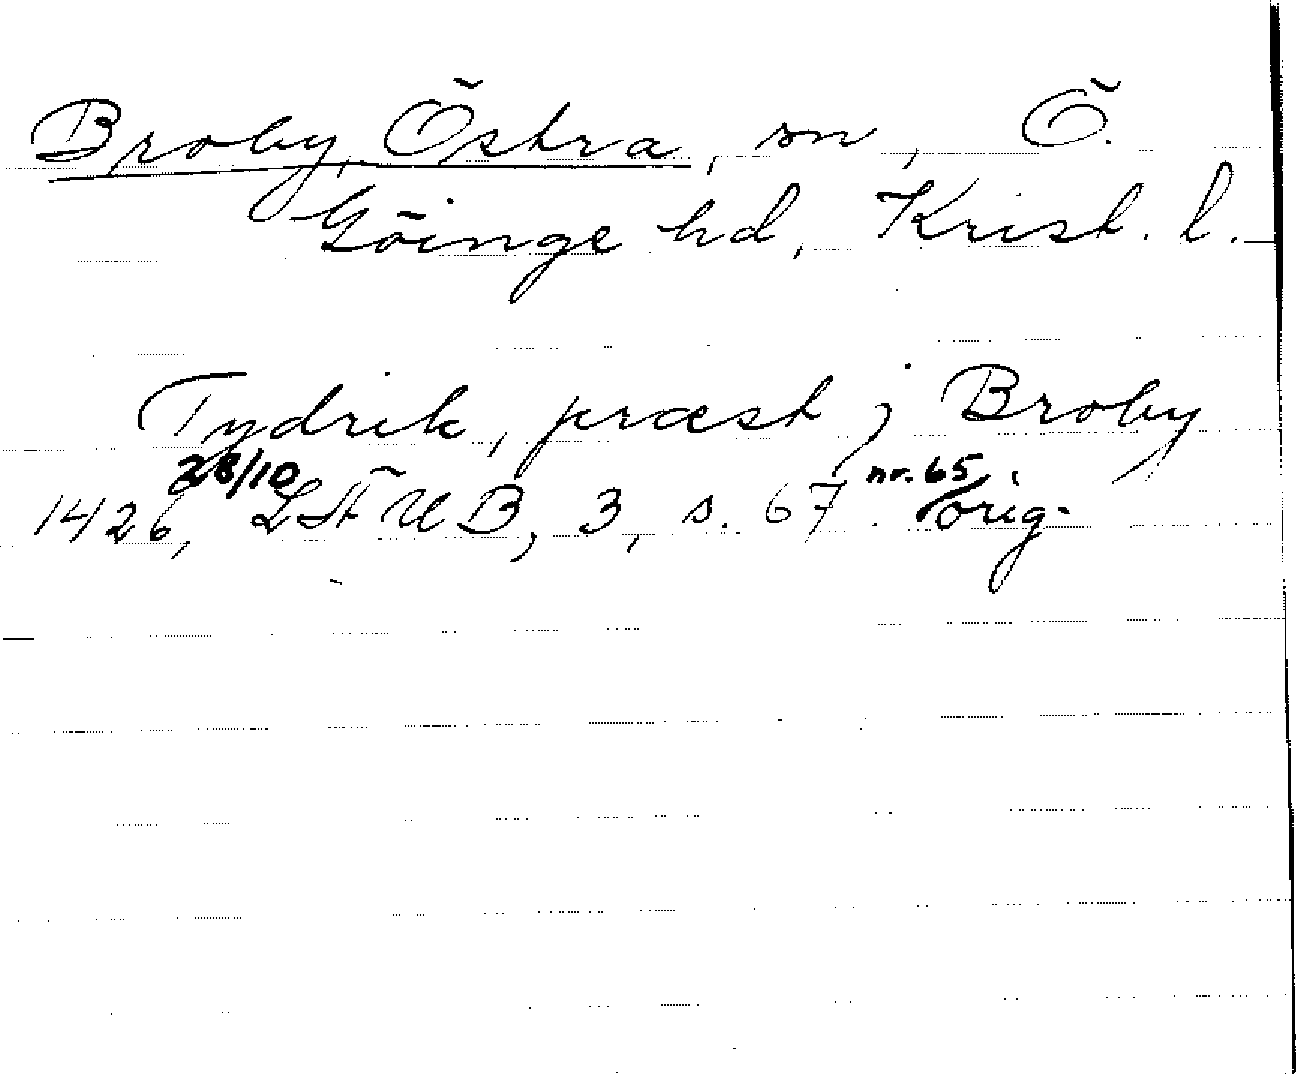 Broby, Östra, sn, Ö.
Göinge hd, Krist. l.
Tydrik, præst j Broby
28/10 nr. 65
1426, LÄUB, 3, s. 67. orig.